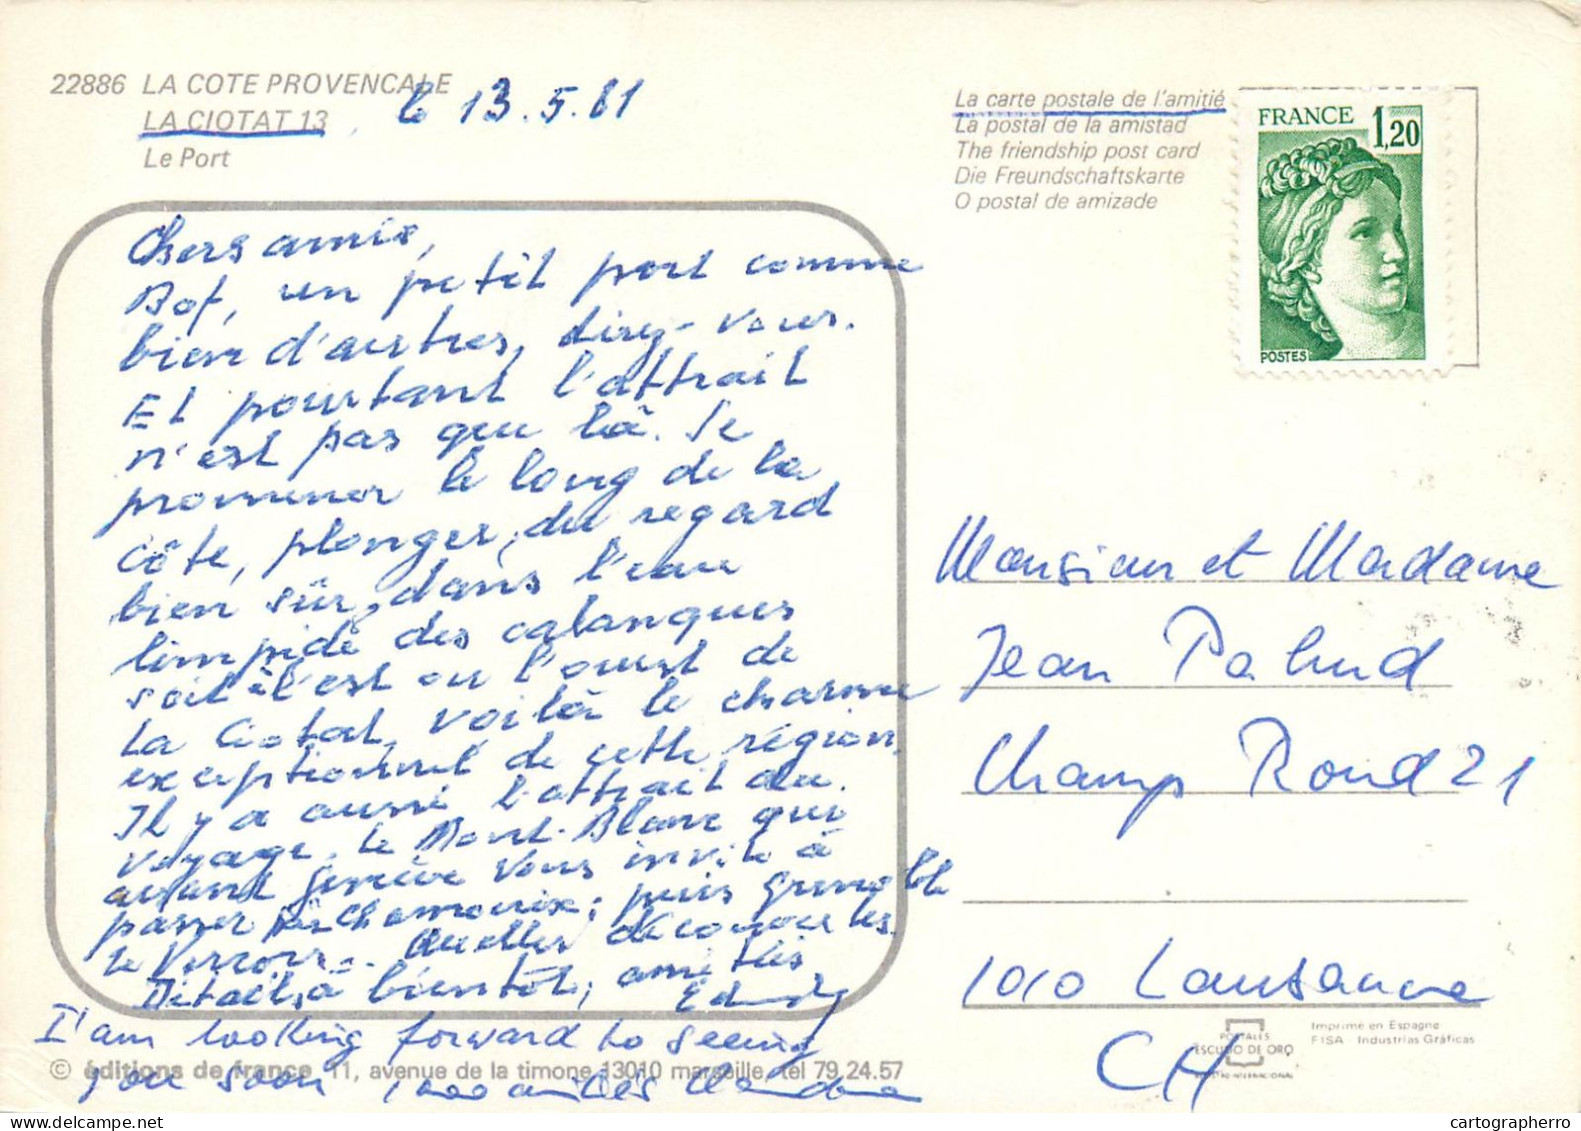 22886 LA COTE PROVENCALE
LA CIOTAT 13, le 13.5.81
Le Port
La carte postale de l'amitié
La postal de la amistad
The friendship post card
Die Freundschaftskarte
O postal de amizade
FRANCE 1,20
POSTES
Chers amis,
Bof, un petit port comme
bien d'autres, direz-vous.
Et pourtant l'attrait
n'est pas que là. Se
promener le long de la
côte, plonger, du regard
bien sûr, dans l'eau
limpide des calanques
soit à l'est ou l'ouest de
La Ciotat, voilà le charme
exceptionnel de cette région.
Il y a aussi l'attrait du
voyage. le Mont-Blanc qui
avant Genève vous invite à
passer par Chamonix; puis Grenoble
le Vercors... Quelles découvertes.
Détails à bientôt, amitiés
I'am looking forward to seeing
you soon
Monsieur et Madame
Jean Pahud
Champ Rond 21
1010 Lausanne
CH
© éditions de france 11, avenue de la timone 13010 marseille tél 79.24.57
POSTALES
ESCUDO DE ORO
Imprimé en Espagne
FISA Industrias Gráficas
cartographerro